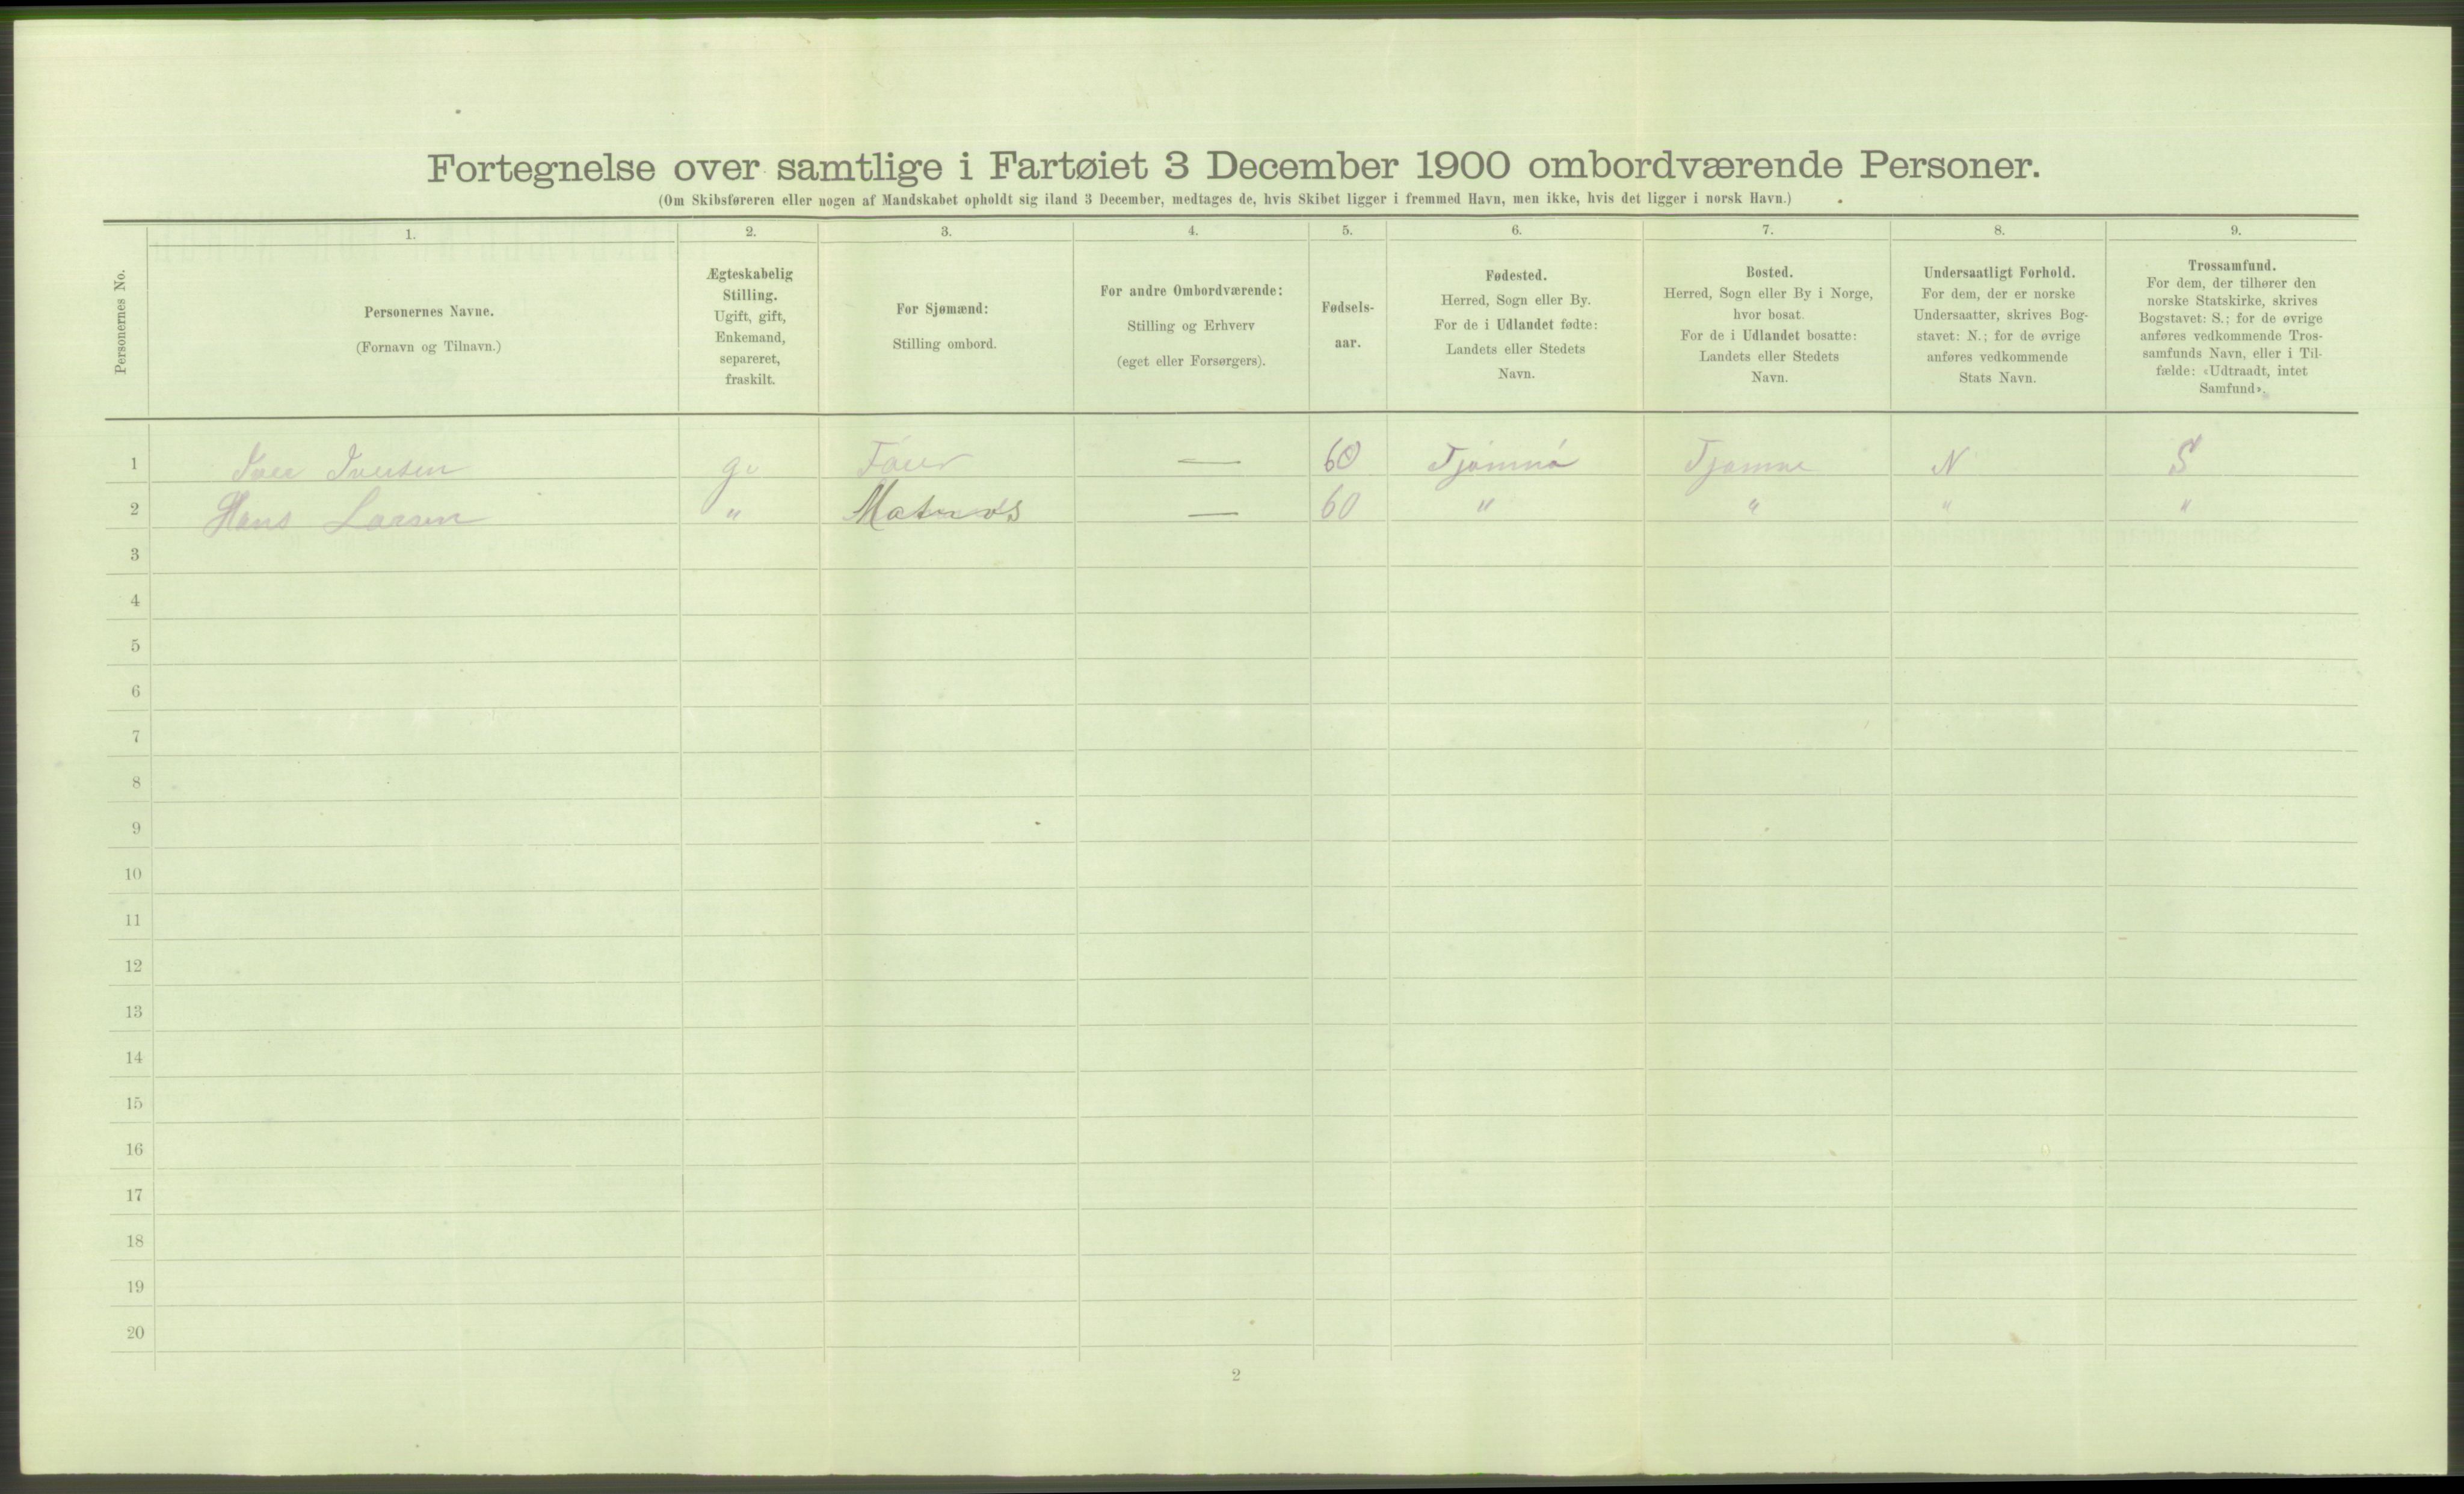 Fortegnelse over samtlige i Fartøiet 3 December 1900 ombordværende Personer.
(Om Skibsføreren eller nogen af Mandskabet opholdt sig iland 3 December, medtages de, hvis Skibet ligger i fremmed Havn, men ikke, hvis det ligger i norsk Havn.)
Personernes No.
1.
Personernes Navne.
(Fornavn og Tilnavn.)
2.
Ægteskabelig
Stilling.
Ugift, gift,
Enkemand,
separeret,
fraskilt.
3.
For Sjømænd:
Stilling ombord.
4.
For andre Ombordværende:
Stilling og Erhverv
(eget eller Forsørgers).
5.
Fødsels-
aar.
6.
Fødested.
Herred, Sogn eller By.
For de i Udlandet fødte:
Landets eller Stedets
Navn.
7.
Bosted.
Herred, Sogn eller By i Norge,
hvor bosat.
For de i Udlandet bosatte:
Landets eller Stedets
Navn.
8.
Undersaatligt Forhold.
For dem, der er norske
Undersaatter, skrives Bog-
stavet: N.; for de øvrige
anføres vedkommende
Stats Navn.
9.
Trossamfund.
For dem, der tilhører den
norske Statskirke, skrives
Bogstavet: S.; for de øvrige
anføres vedkommende Tros-
samfunds Navn, eller i Til-
fælde: «Udtraadt, intet
Samfund».
1 Iver Iversen — 60 N S
2 Hans Larsen " Matros — 60 " " " "
3
4
5
6
7
8
9
10
11
12
13
14
15
16
17
18
19
20
2